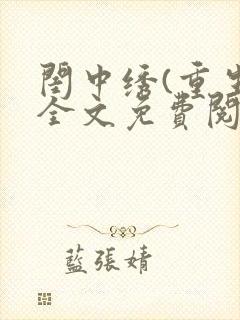 閨中绣(重生
全文免費閱
藍張婧